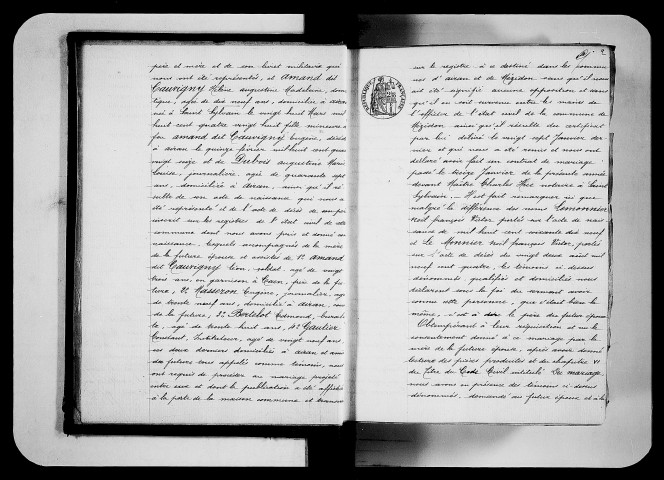 père et mère et de son livret militaire qui
nous ont été représentés, et Amand dit
Cauvigny Hélène Augustine Madeleine, domes-
tique, agée de dix neuf ans, domiciliée à Airan
née à Saint Sylvain le vingt huit Mars mil
huit cent quatre vingt huit fille mineure de
feu Amand dit Cauvigny Eugène, décédé
à Airan le quinze février mil huit cent quatre
vingt seize et de Dubois Augustine Marie
Louise, journalière, agée de quarante sept
ans, domiciliée à Airan, ainsi qu'il ré-
sulte de son acte de naissance qui nous a
été représenté et de l'acte de décès de son père
inscrit sur les registres de l'état civil de cette
commune dont nous avons pris et donné con-
naissance; lesquels accompagnés de la mère
de la future épouse et assistés de 1° Amand
dit Cauvigny Léon, soldat, agé de vingt
trois ans, en garnison à Caen, frère de la fu-
ture, 2° Masseron Eugène, journalier, agé
de trente neuf ans, domicilié à Airan,
de la future, 3° Bertelot Edmond,
agé de trente huit ans, 4° Gautier
Constant, Instituteur, agé de vingt neuf ans
ces deux derniers domiciliés à Airan et amis
des futurs tous appelés comme témoins, nous
ont requis de procéder au mariage projeté
entre eux et dont la publication a été affichée
à la porte de la maison commune et transcrite
2
RÉPUBLIQUE FRANÇAISE
sur le registre à ce destiné dans les commu-
nes d'Airan et de Mézidon sans qu'il nous
ait été signifié aucune opposition et sans
qu'il en soit survenu entre les mains de
l'officier de l'état civil de la commune de
Mézidon ainsi qu'il résulte du certificat
par lui délivré le vingt sept Janvier der-
nier et qui nous a été remis et nous ont
déclaré avoir fait un contrat de mariage
passé le treize janvier de la présente année
devant Maître Charles notaire à Saint
Sylvain. — Il est fait remarquer ici que
malgré la différence des noms Lemonnier
Noël françois Victor, portés sur l'acte de nais-
sance de mil huit cent soixante dix neuf
et Le Monnier Noël françois Victor, portés
sur l'acte de décès du vingt deux août mil
neuf cent quatre, les témoins ci dessus
dénommés qualifiés et domiciliés nous
déclarent sous la foi du serment avoir
connu cette personne, que c'était bien la
même, c'est à dire le père du futur époux
Obtempérant à leur réquisition et vu le
consentement donné à ce mariage par la
mère de la future épouse, après avoir donné
lecture des pièces produites et du chapitre VI
du Titre du Code Civil intitulé Du mariage
nous avons en présence des témoins ci-dessus
dénommés, demandé au futur époux et à la